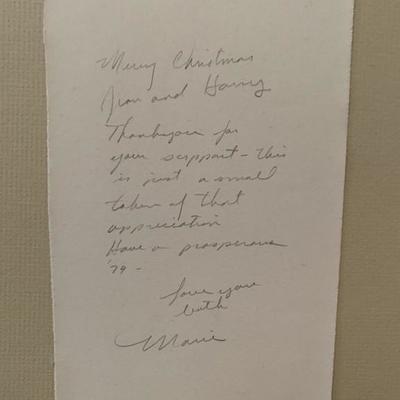 Merry Christmas
Jean and Harry
Thankyou for
your support - this
is just a small
token of that
appreciation
Have a prosperous
'79 -
Love you
both
Marie